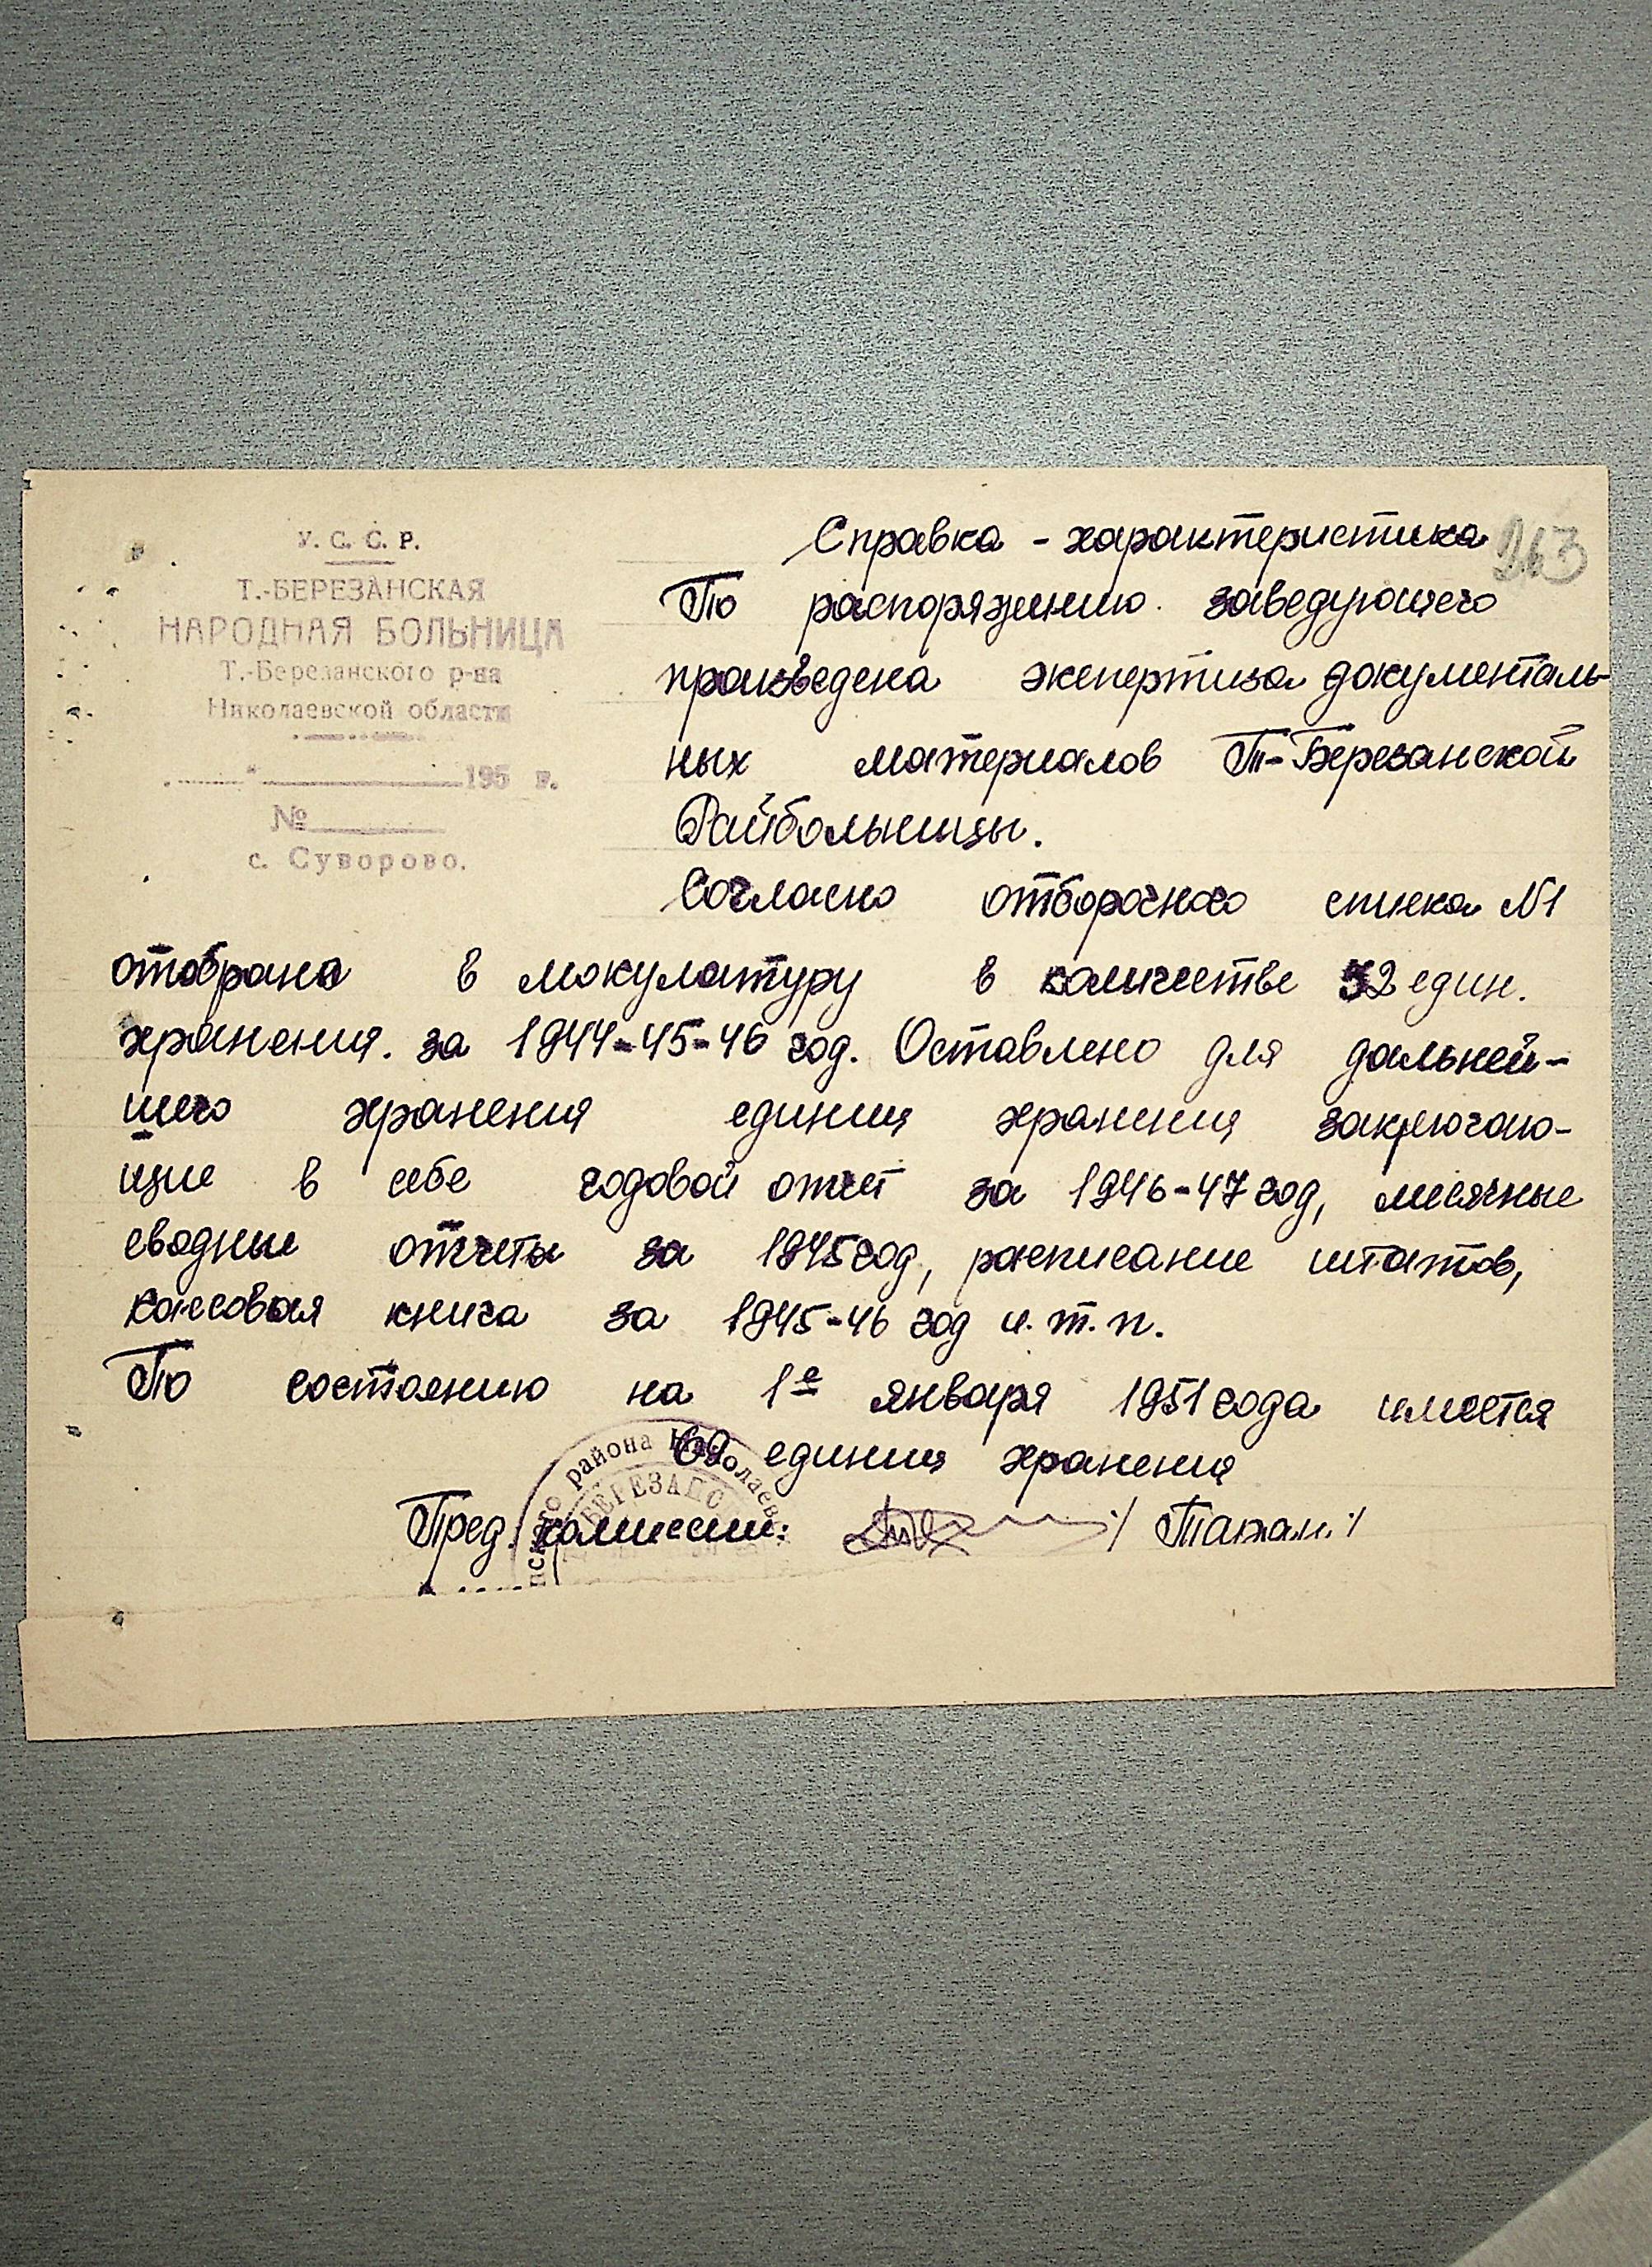 У. С. С. Р.
Т.-БЕРЕЗАНСКАЯ
НАРОДНАЯ БОЛЬНИЦА
Т.-Березанского р-на
Николаевской области
"195 г.
№
с. Суворово.
Справка - характеристика
263
По распоряжению заведующего
произведена экспертиза документаль-
ных материалов Т-Березанской
Райбольницы.
Согласно отборочного списка №1
отобрано в мокулатуру в количестве 52 един.
хранения. за 1944-45-46 год. Оставлено для дальней-
шего хранения единиц хранения заключаю-
щие в себе годовой отчет за 1946-47 год, месячные
сводные отчеты за 1945 год, расписание штатов,
кассовая книга за 1945-46 год и.т.п.
По состоянию на 1е января 1951 года имеется
69 единиц хранения
Пред. комиссии:
района Николаев
БЕРЕЗАНС